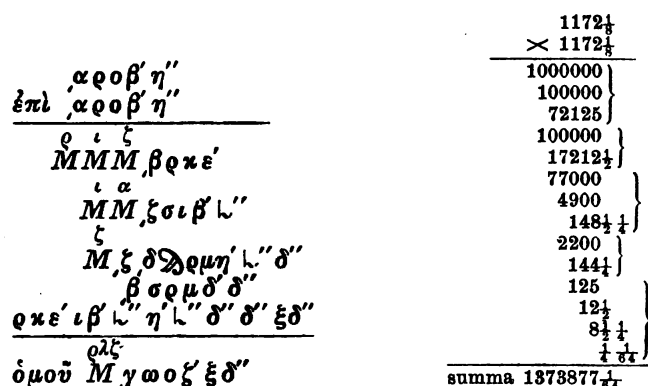 ͵αροβ′ η″
ἐπὶ ͵αροβ′ η″
ρ ι ζ
ΜΜΜ͵βρκε′
ι α
ΜΜ͵ζσιβ′ 𐅵″
ζ
Μ͵ζ͵δϠρμη′ 𐅵″ δ″
͵βσρμδ′ δ″
ρκε′ ιβ′ 𐅵″ η′ 𐅵″ δ″ δ″ ξδ″
ρλζ
ὁμοῦ Μ γωοζ′ ξδ″
1172⅛
× 1172⅛
1000000
100000
72125
100000
17212½
77000
4900
148½ ¼
2200
144¼
125
12½
8½ ¼
¼ 1/64
summa 1373877 1/64